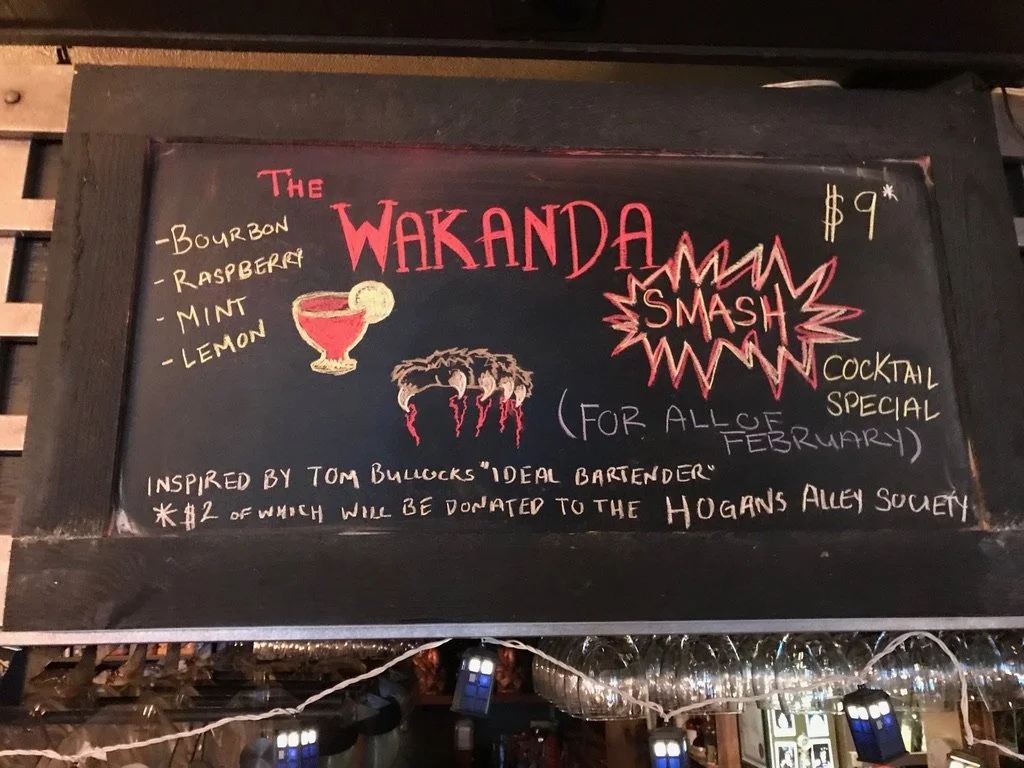 THE
WAKANDA
SMASH
COCKTAIL
SPECIAL
$9*
-BOURBON
-RASPBERRY
-MINT
-LEMON
(FOR ALL OF
FEBRUARY)
INSPIRED BY TOM BULLOCKS "IDEAL BARTENDER"
*$2 OF WHICH WILL BE DONATED TO THE HOGANS ALLEY SOCIETY